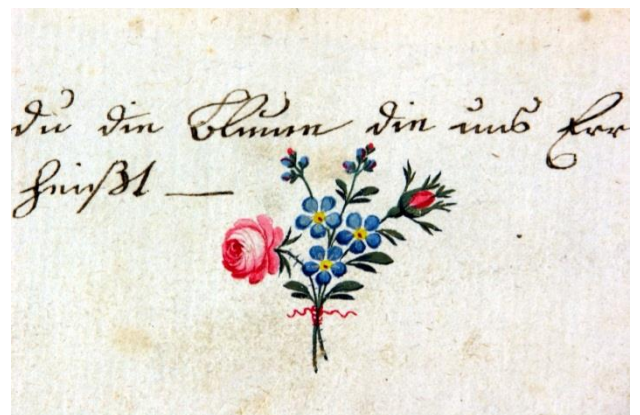 du die Blume die uns Err
heißt —